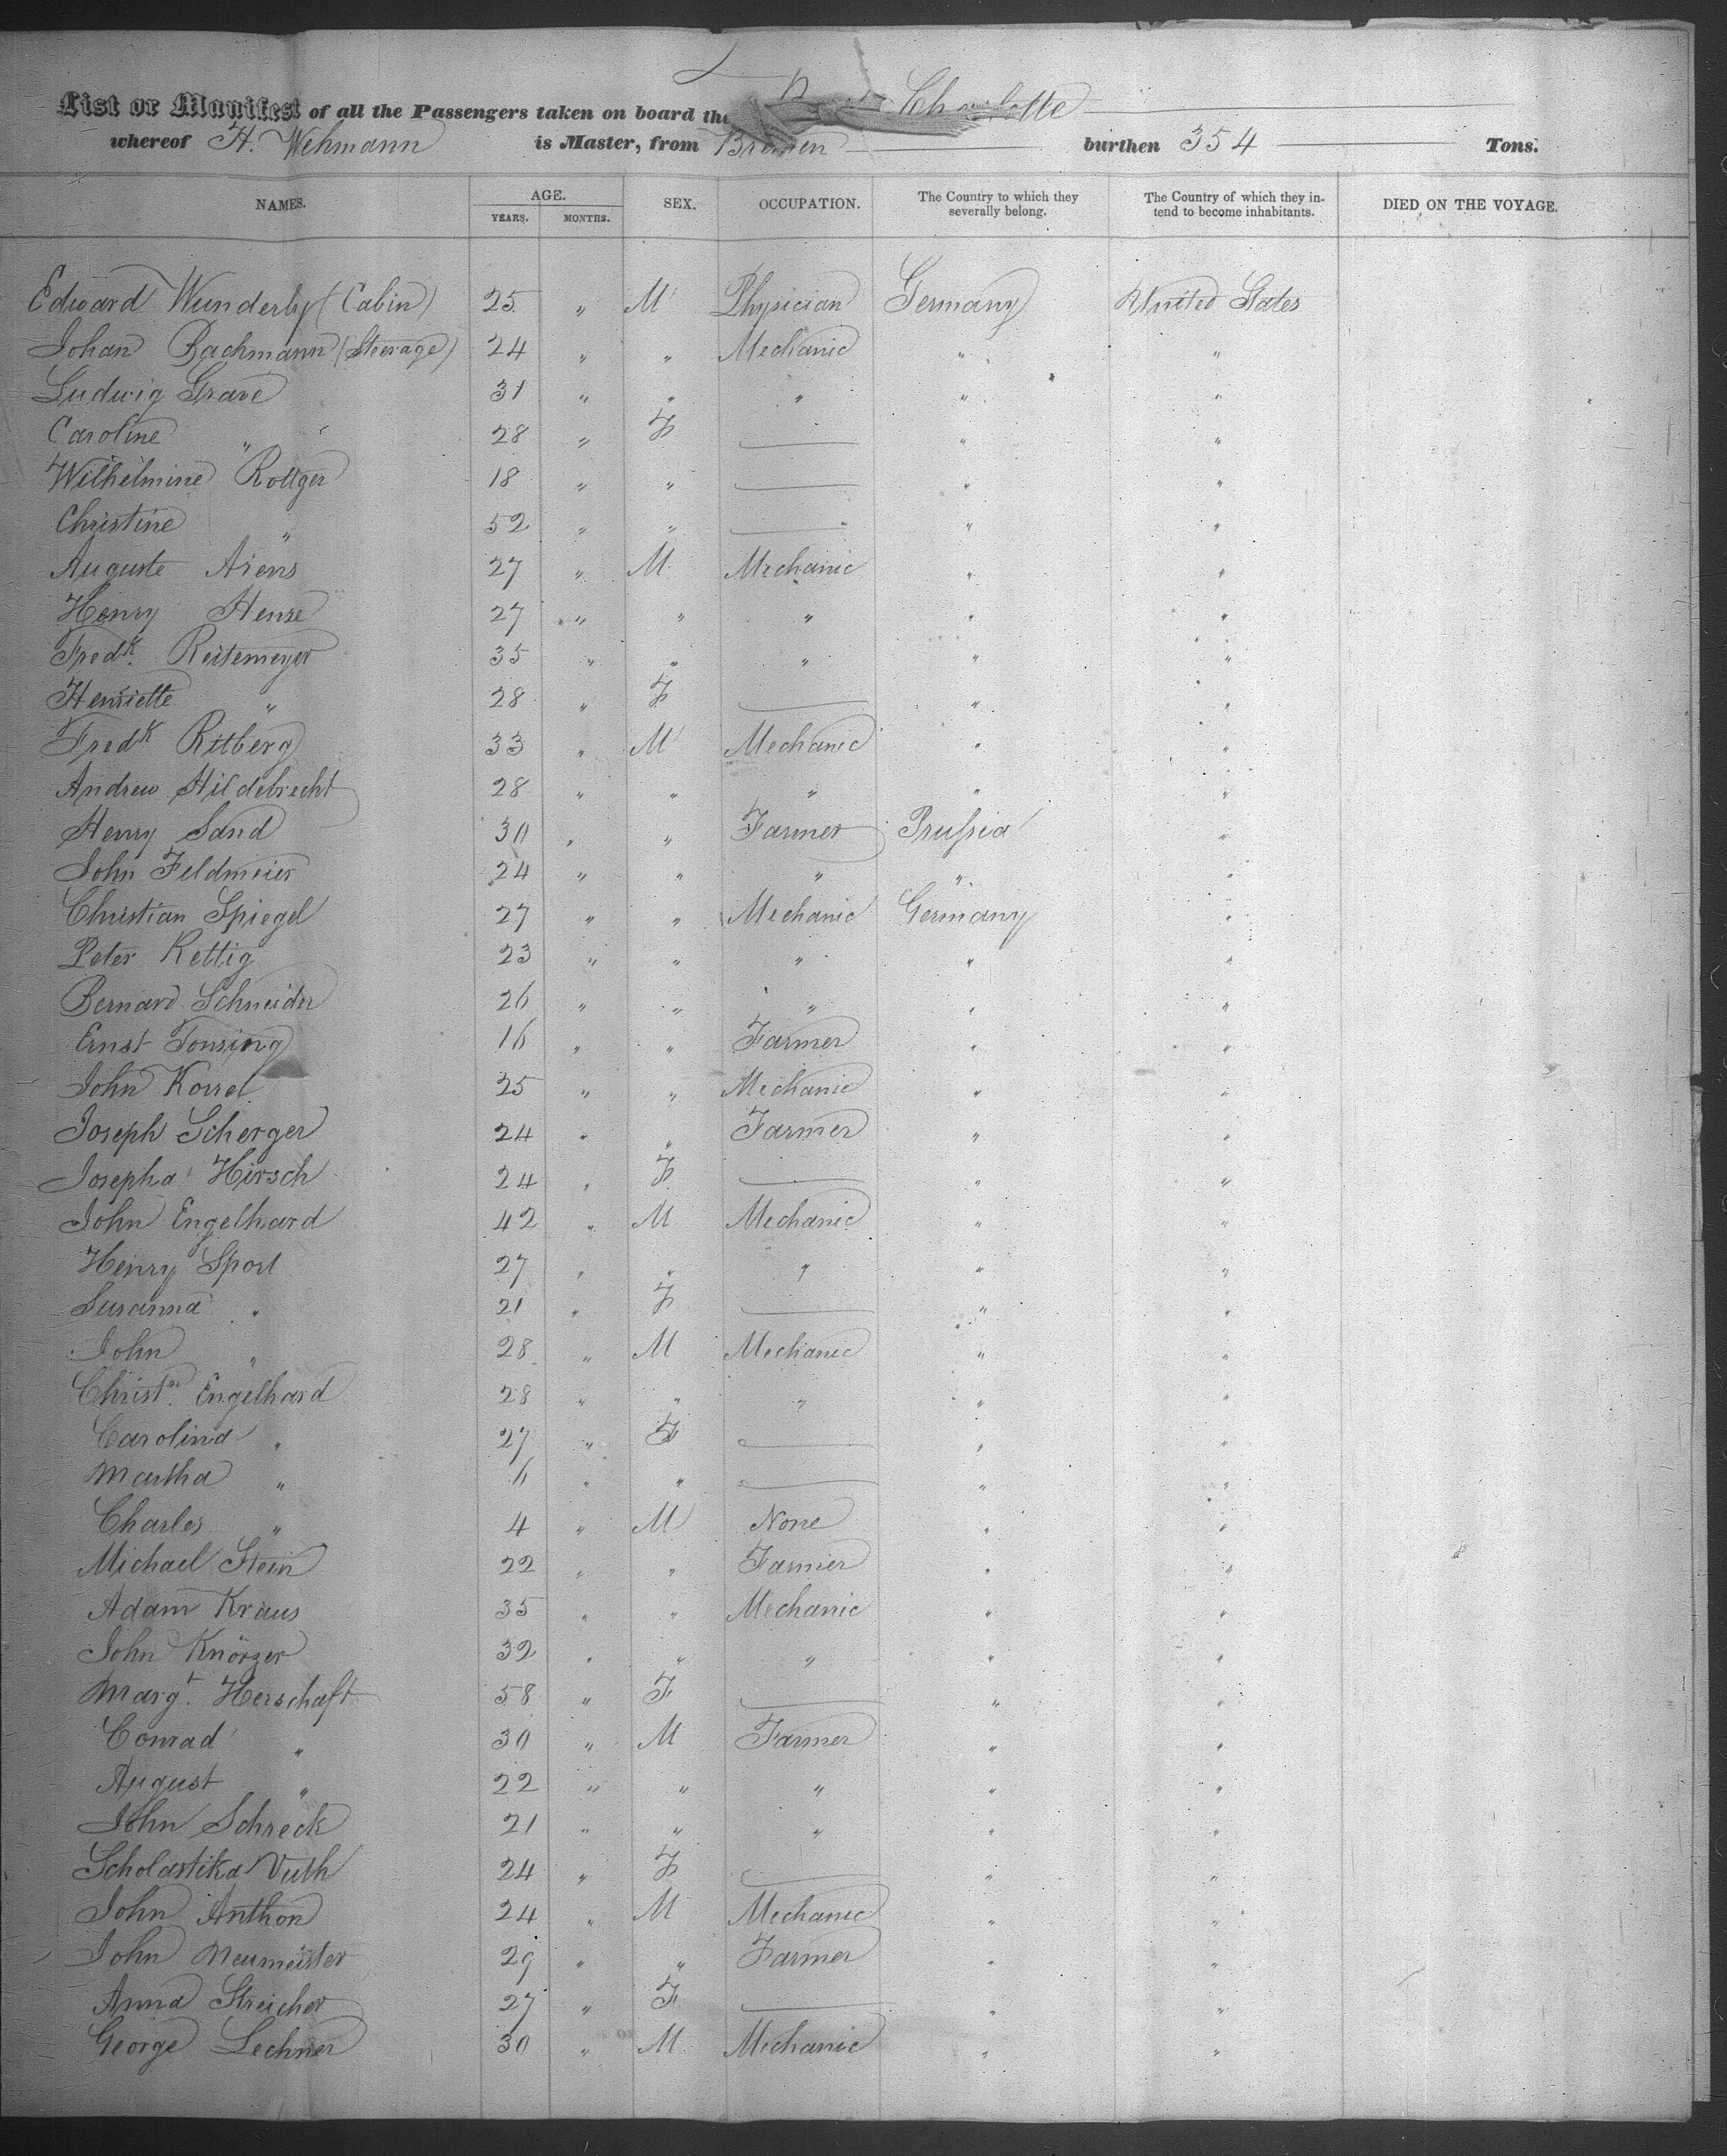 List or Manifest of all the Passengers taken on board the Charlotte
whereof H. Wehmann is Master, from Bremen burthen 354 Tons.
NAMES. AGE. YEARS. MONTHS. SEX. OCCUPATION. The Country to which they severally belong. The Country of which they intend to become inhabitants. DIED ON THE VOYAGE.
Edward Wunderly (Cabin) 25 " M Physician Germany United States
Johan Bachmann (Steerage) 24 " " Mechanic " "
Ludwig Grave 31 " " " " "
Caroline " 28 " F — " "
Wilhelmine Rottger 18 " " — " "
Christine " 52 " " — " "
Auguste Arens 27 " M Mechanic " "
Henry Hense 27 " " " " "
Fredk. Reitemeyer 35 " " " " "
Henriette " 28 " F — " "
Fredk Ritberg 33 " M Mechanic " "
Andrew Hildebrecht 28 " " " " "
Henry Sand 30 " " Farmer Prussia "
John Feldmeier 24 " " " " "
Christian Spiegel 27 " " Mechanic Germany "
Peter Rettig 23 " " " " "
Bernard Schneider 26 " " " " "
Ernst Tonsing 16 " " Farmer " "
John Korrel 25 " " Mechanic " "
Joseph Scherger 24 " " Farmer " "
Josepha Hirsch 24 " F — " "
John Engelhard 42 " M Mechanic " "
Henry Sporl 27 " " " " "
Susanna " 21 " F — " "
John " 28 " M Mechanic " "
Christn. Engelhard 28 " " " " "
Carolina " 27 " F — " "
Martha " 6 " " — " "
Charles " 4 " M None " "
Michael Stein 22 " " Farmer " "
Adam Kraus 35 " " Mechanic " "
John Knörzer 32 " " " " "
Margt. Herschaft 58 " F — " "
Conrad " 30 " M Farmer " "
August " 22 " " " " "
John Schreck 21 " " " " "
Scholastika Vuth 24 " F — " "
John Anthon 24 " M Mechanic " "
John Neumeister 29 " " Farmer " "
Anna Streicher 27 " F — " "
George Lechner 30 " M Mechanic " "